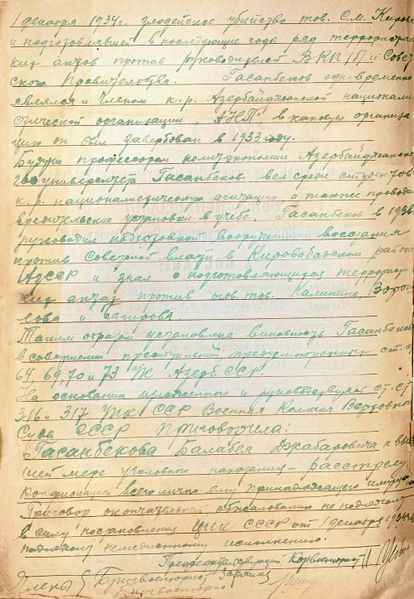 1 декабря 1934г. злодейское убийство тов. С.М. Киро
и подготовлявшей в последующие годы ряд террористиче
ких актов против руководителей ВКП/б/ и Совет
ского Правительства. Гасанбеков одновременно
являлся и членом к.р. Азербайджанской национали
стической организации, в какую организа
цию он был завербован в 1933 году.
Будучи профессором политэкономии Азербайджанско
го университета Гасанбеков вел среди студентов
к.р. националистическую агитацию, а также проводил
вредительские установки в учебе. Гасанбеков в 1936
руководил подготовкой вооружен восстания
против Советской власти в Кировабадском районе
АзССР и знал о подготовляющихся террорис
ких актах против тов. тов. Калинина Воро
лова и
Таким образом установлена виновность Гасанбеков
в совершении преступлений, предусмотренных ст. ст.
64, 69, 70 и 73 УК Азерб ССР.
На основании изложенного и руководствуясь ст. ст.
316 и 317 УПК ССР Военная Коллегия Верховно
Суда СССР Приговорила:
Гасанбекова Балабея Джабаровича к выс
шей мере уголовного наказания – расстрелу
конфискацией всего лично ему принадлежащего имуще
Приговор окончательный обжалованию не подлежит
в силу постановления ЦИК СССР от 1 декабря 1934
подлежит немедленному исполнению.
Председательствующий Корвоенюрист
Члены Бригвоенюрист
Бригвоенюрист